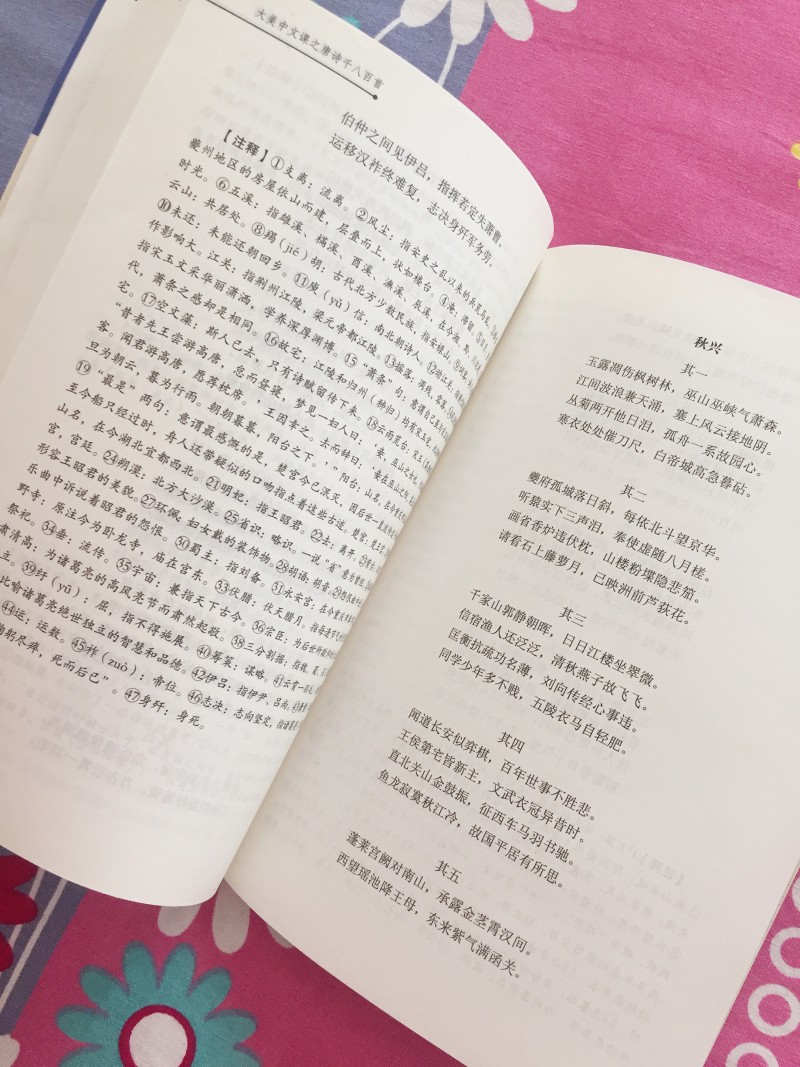 大美中文课之唐诗千八百首
伯仲之间见伊吕，指挥若定失萧曹。
运移汉祚终难复，志决身歼军务劳。
【注释】①支离：流离。②风尘：指安史之乱以来的兵荒马乱。
夔州地区的房屋依山而建，层叠而上，状如楼台。④淹：滞留。
时光。⑥五溪：指雄溪、樠溪、酉溪、潕溪、辰溪，在今湘、黔、
云山：共居处。⑧羯（jié）胡：古代北方少数民族，指安禄山。
⑩未还：未能还朝回乡。⑪庾（yǔ）信：南北朝诗人。⑫动江关：指
作影响大。江关：指荆州江陵，梁元帝都江陵。⑬摇落：凋残，零落。
指宋玉文采华丽潇洒，学养深厚渊博。⑮“萧条”句：意谓自己虽与
代，萧条之感却是相同。⑯故宅：江陵和归州（秭归）均有宋玉宅，
⑰空文藻：斯人已去，只有诗赋留传下来。⑱云雨荒台：宋玉
“昔者先王尝游高唐，怠而昼寝，梦见一妇人曰：‘妾，巫山之女也，
客。闻君游高唐，愿荐枕席。’王因幸之。去而辞曰：‘妾在巫山之阳，
旦为朝云，暮为行雨。朝朝暮暮，阳台之下。’”阳台：山名，在今重庆
⑲“最是”两句：意谓最感慨的是，楚宫今已泯灭，因后世一直流传
至今船只经过时，舟人还带疑似的口吻指点着这些古迹。楚宫：楚王宫
山名，在今湖北宜都西北。㉑明妃：指王昭君。㉒去：离开。
宫，宫廷。㉔朔漠：北方大沙漠。㉕省识：略识。一说“省”意为曾经
形容王昭君的美貌。㉗环佩：妇女戴的装饰物。㉘胡语：胡音。㉙怨恨曲
乐曲中诉说着昭君的怨恨。㉚蜀主：指刘备。㉛永安宫：在今重庆
野寺：原注今为卧龙寺，庙在宫东。㉝伏腊：伏天腊月。指每逢节
祭祀。㉞垂：流传。㉟宇宙：兼指天下古今。㊱宗臣：为后世所敬仰
肃清高：为诸葛亮的高风亮节而肃然起敬。㊳三分割据：指魏、蜀、
主。㊴纡（yū）：屈，指不得施展。㊵筹策：谋略。㊶云霄一羽毛：
比喻诸葛亮绝世独立的智慧和品德。㊷伊吕：指伊尹、吕尚。
㊹运：运数。㊺祚（zuò）：帝位。㊻志决：志向坚定，指诸葛亮
鞠躬尽瘁，死而后已”。㊼身歼：身死。
秋兴
其一
玉露凋伤枫树林，巫山巫峡气萧森。
江间波浪兼天涌，塞上风云接地阴。
丛菊两开他日泪，孤舟一系故园心。
寒衣处处催刀尺，白帝城高急暮砧。
其二
夔府孤城落日斜，每依北斗望京华。
听猿实下三声泪，奉使虚随八月槎。
画省香炉违伏枕，山楼粉堞隐悲笳。
请看石上藤萝月，已映洲前芦荻花。
其三
千家山郭静朝晖，日日江楼坐翠微。
信宿渔人还泛泛，清秋燕子故飞飞。
匡衡抗疏功名薄，刘向传经心事违。
同学少年多不贱，五陵衣马自轻肥。
其四
闻道长安似弈棋，百年世事不胜悲。
王侯第宅皆新主，文武衣冠异昔时。
直北关山金鼓振，征西车马羽书驰。
鱼龙寂寞秋江冷，故国平居有所思。
其五
蓬莱宫阙对南山，承露金茎霄汉间。
西望瑶池降王母，东来紫气满函关。